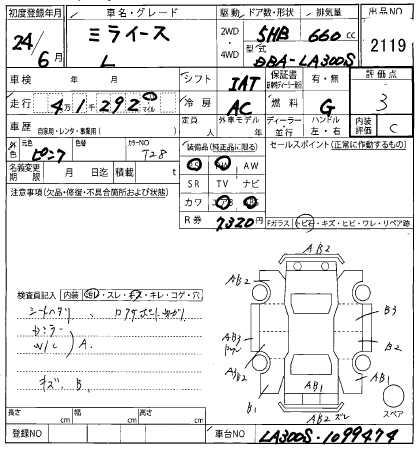 初度登録年月 車名・グレード 駆動 ドア数・形状 排気量 出品NO
24/6月 ミライース L 2WD・4WD 5HB 660cc 2119
型式 DBA-LA300S
車検 年 月 シフト IAT 保証書 有・無 評価点
走行 4万1千292 マイル 冷房 AC 燃料 G 3
車歴 自家用・レンタ・事業用( ) 定員 人 外車モデル 年 ディーラー・並行 ハンドル 左・右 内装評価 C
外色 元色 ピンク 色替 カラーNO T28
装備品(純正品に限る) セールスポイント(正常に作動するもの)
PS PW AW
名義変更期限 月 日迄 積載 t
SR TV ナビ
注意事項(欠品・修復・不具合箇所および状態)
カワ エアB
R券 7320円
Fガラス トビ石・キズ・ヒビ・ワレ・リペア跡
検査員記入 内装 ヨゴレ・スレ・キズ・キレ・コゲ・穴
シートヘタリ
ミラー
W/C A.
キズ B.
AB2
AB2
AB3
B3
B2
A/B2
AB1
AB1
B1
AB2 スレ
スペア
長さ cm 幅 cm 高さ cm
登録NO 車台NO LA300S-1099474